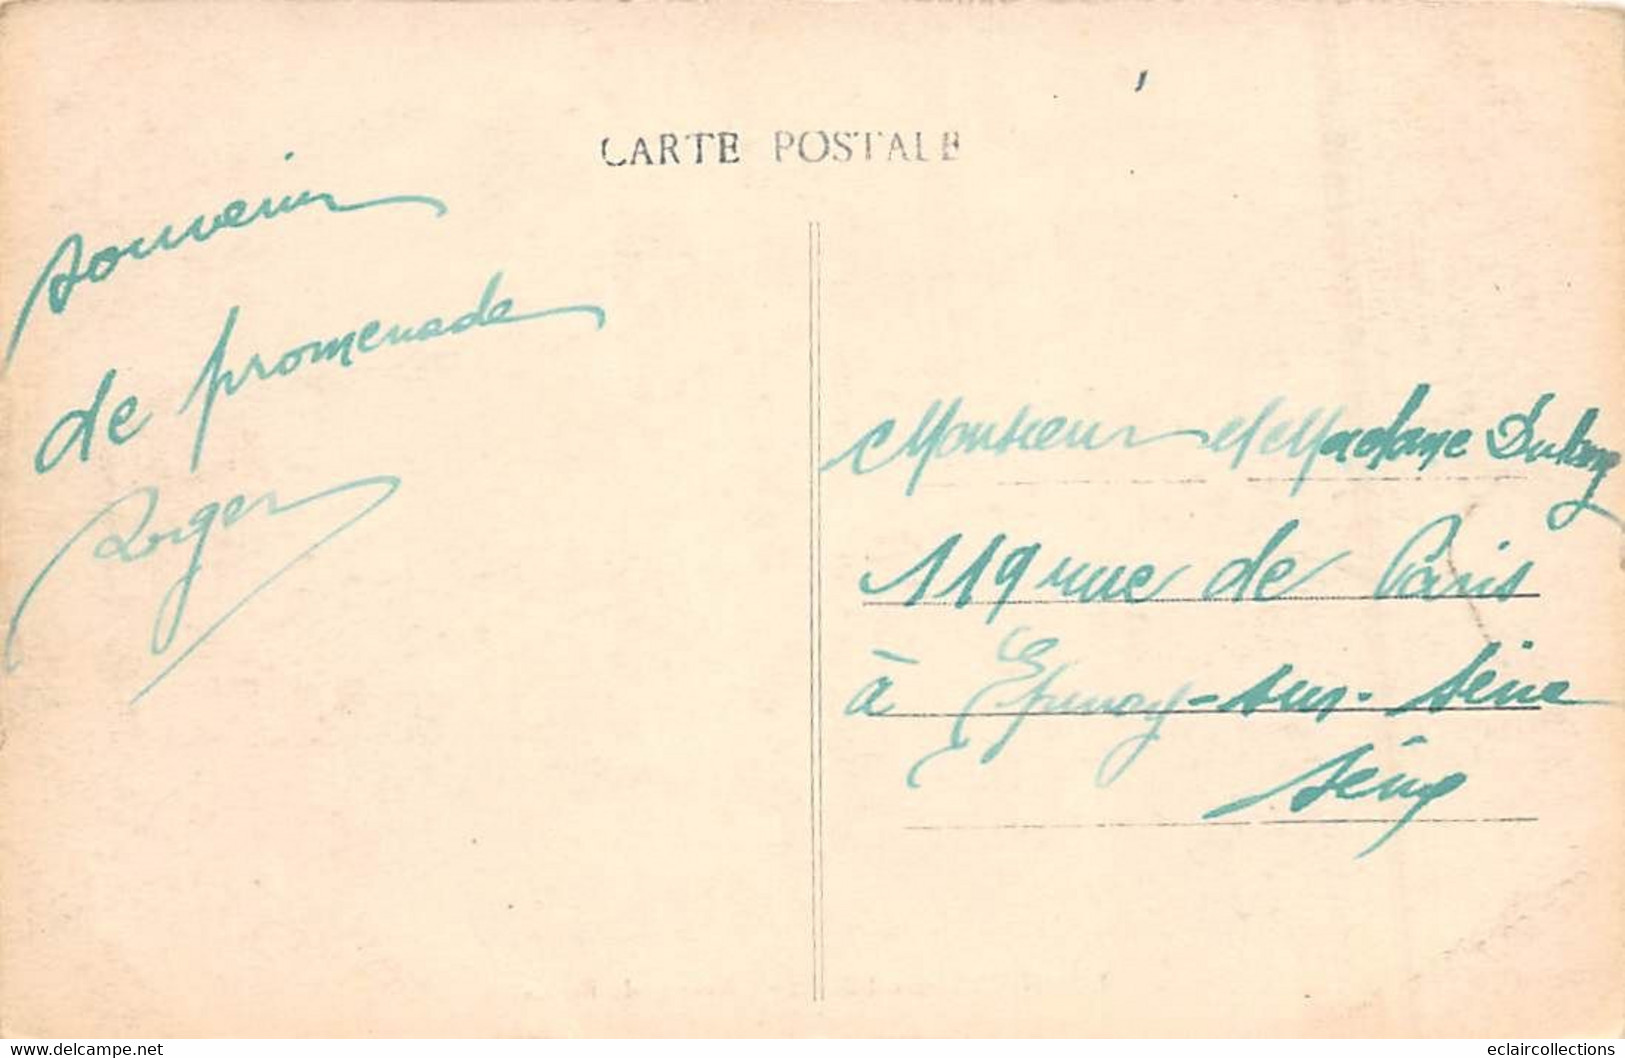 CARTE POSTALE
souvenir
de promenade
Roger
Monsieur et Madame
119 rue de Paris
à Epinay-sur-Seine
Seine
www.delcampe.net
eclaircollections